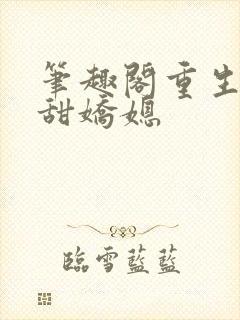 筆趣閣重生
甜嬌媳
臨雪藍藍